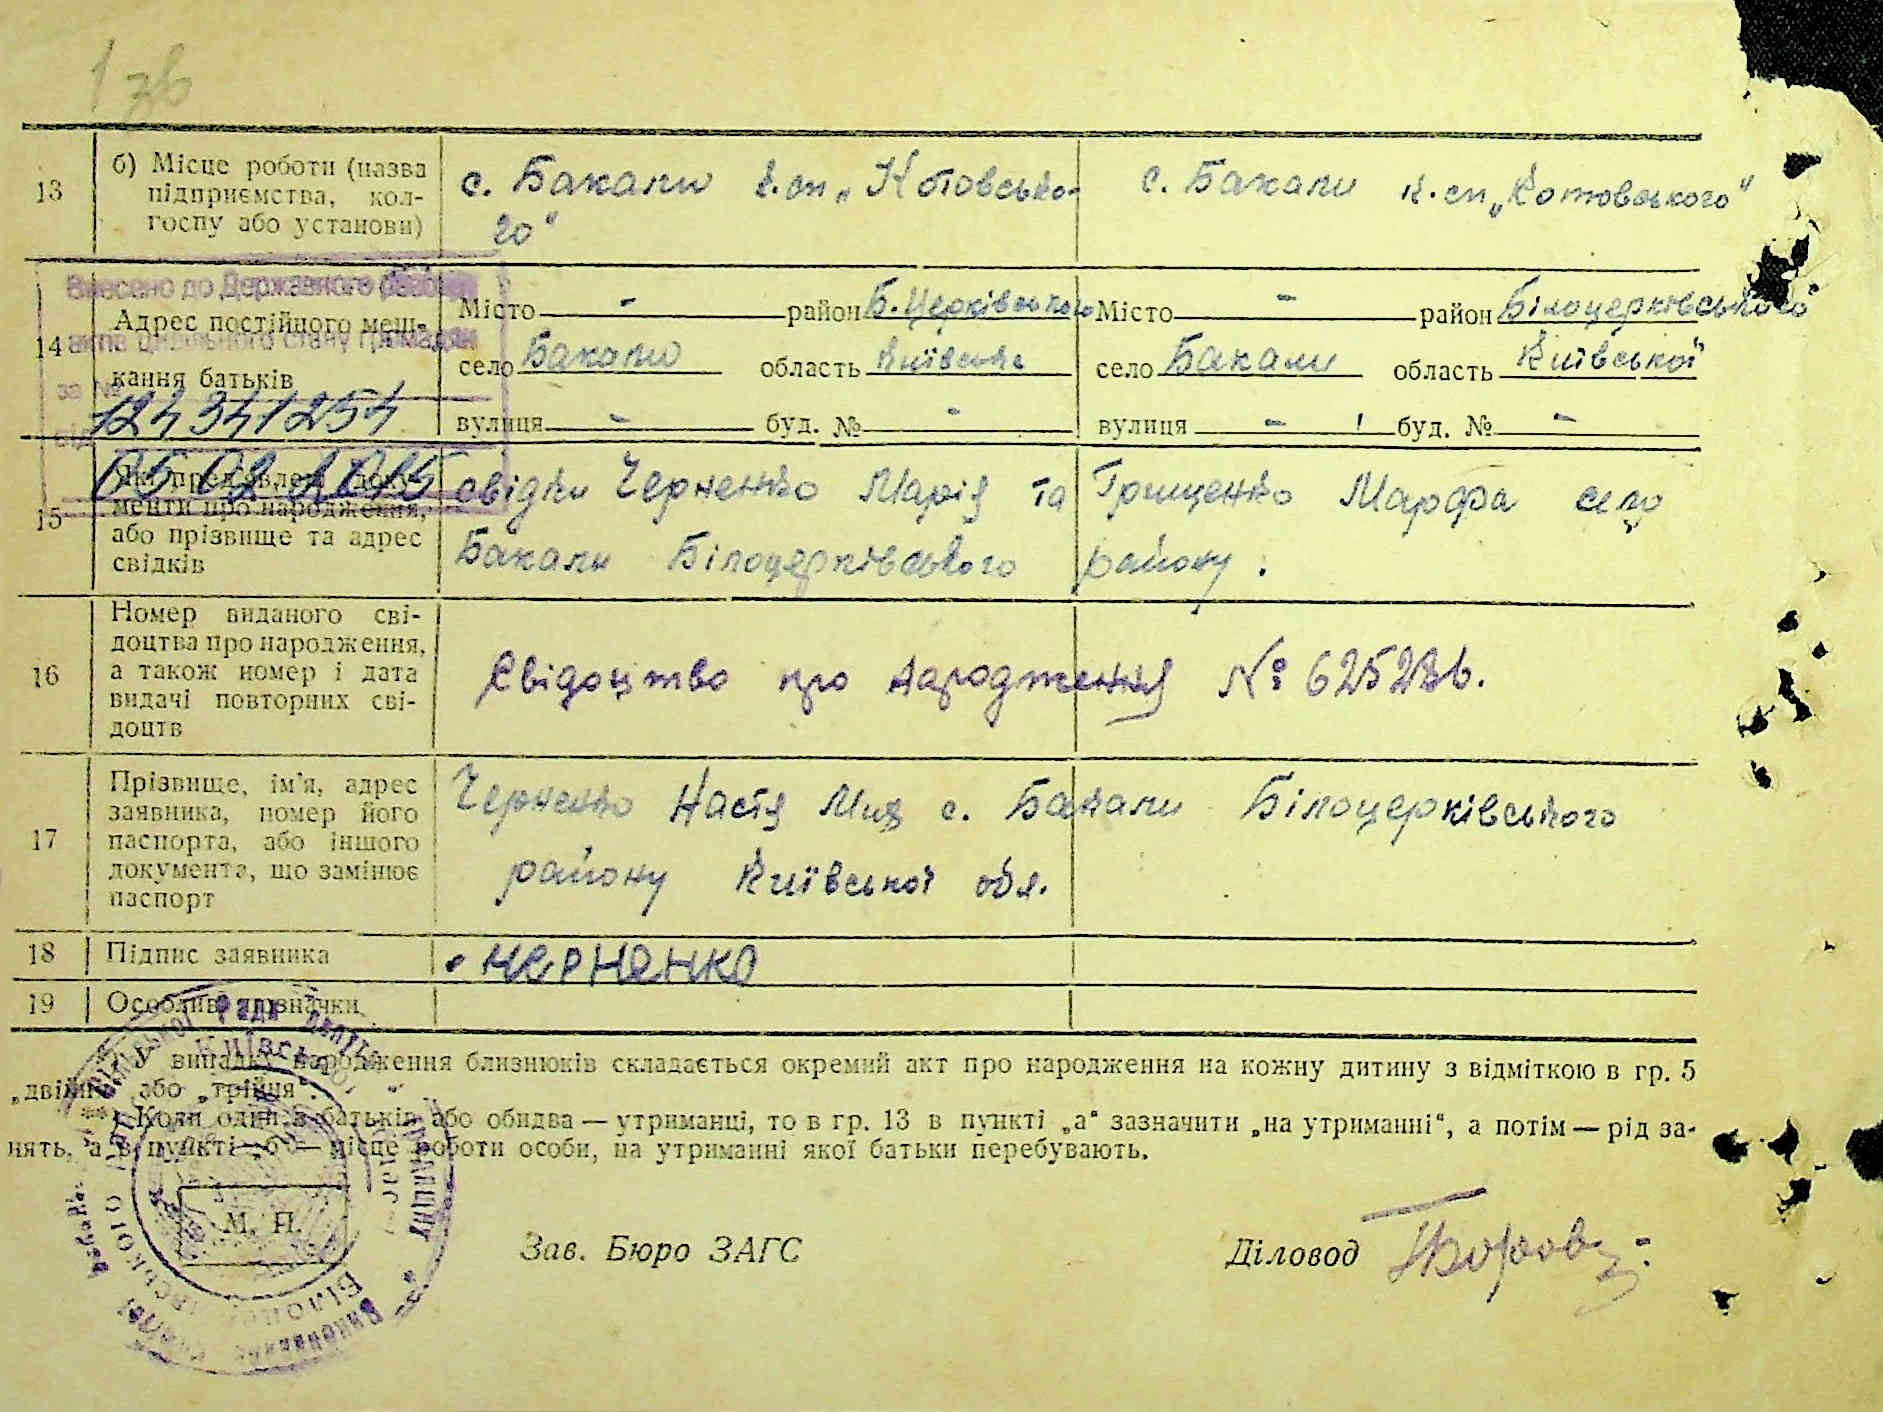 1 зв
13 б) Місце роботи (назва підприємства, колгоспу або установи)
с. Бакали к.сп „Котовсько-
го"
с. Бакали к.сп „Котовського"
Внесено до Державного
актів цивільного стану громадян
за №
124341254
від 05.02.
14 Адрес постійного меш-
кання батьків
Місто - район Б.Церківського
село Бакали область Київська
вулиця - буд. № -
Місто - район Білоцерківського
село Бакали область Київської
вулиця - буд. № -
15 Які пред'явлені доку-
менти про народження,
або прізвище та адрес
свідків
свідки Черненко Марія та Грищенко Марфа село
Бакали Білоцерківського району.
16 Номер виданого сві-
доцтва про народження,
а також номер і дата
видачі повторних сві-
доцтв
Свідоцтво про народження №
17 Прізвище, ім'я, адрес
заявника, номер його
паспорта, або іншого
документа, що замінює
паспорт
Черненко Настя с. Бакали Білоцерківського
району Київської обл.
18 Підпис заявника
Черненко
19 Особливі позначки
*) У випадку народження близнюків складається окремий акт про народження на кожну дитину з відміткою в гр. 5
„двійня" або „трійня".
**) Коли один з батьків або обидва — утриманці, то в гр. 13 в пункті „а" зазначити „на утриманні", а потім — рід за-
нять, а в пункті „б" — місце роботи особи, на утриманні якої батьки перебувають.
М. П.
Зав. Бюро ЗАГС
Діловод